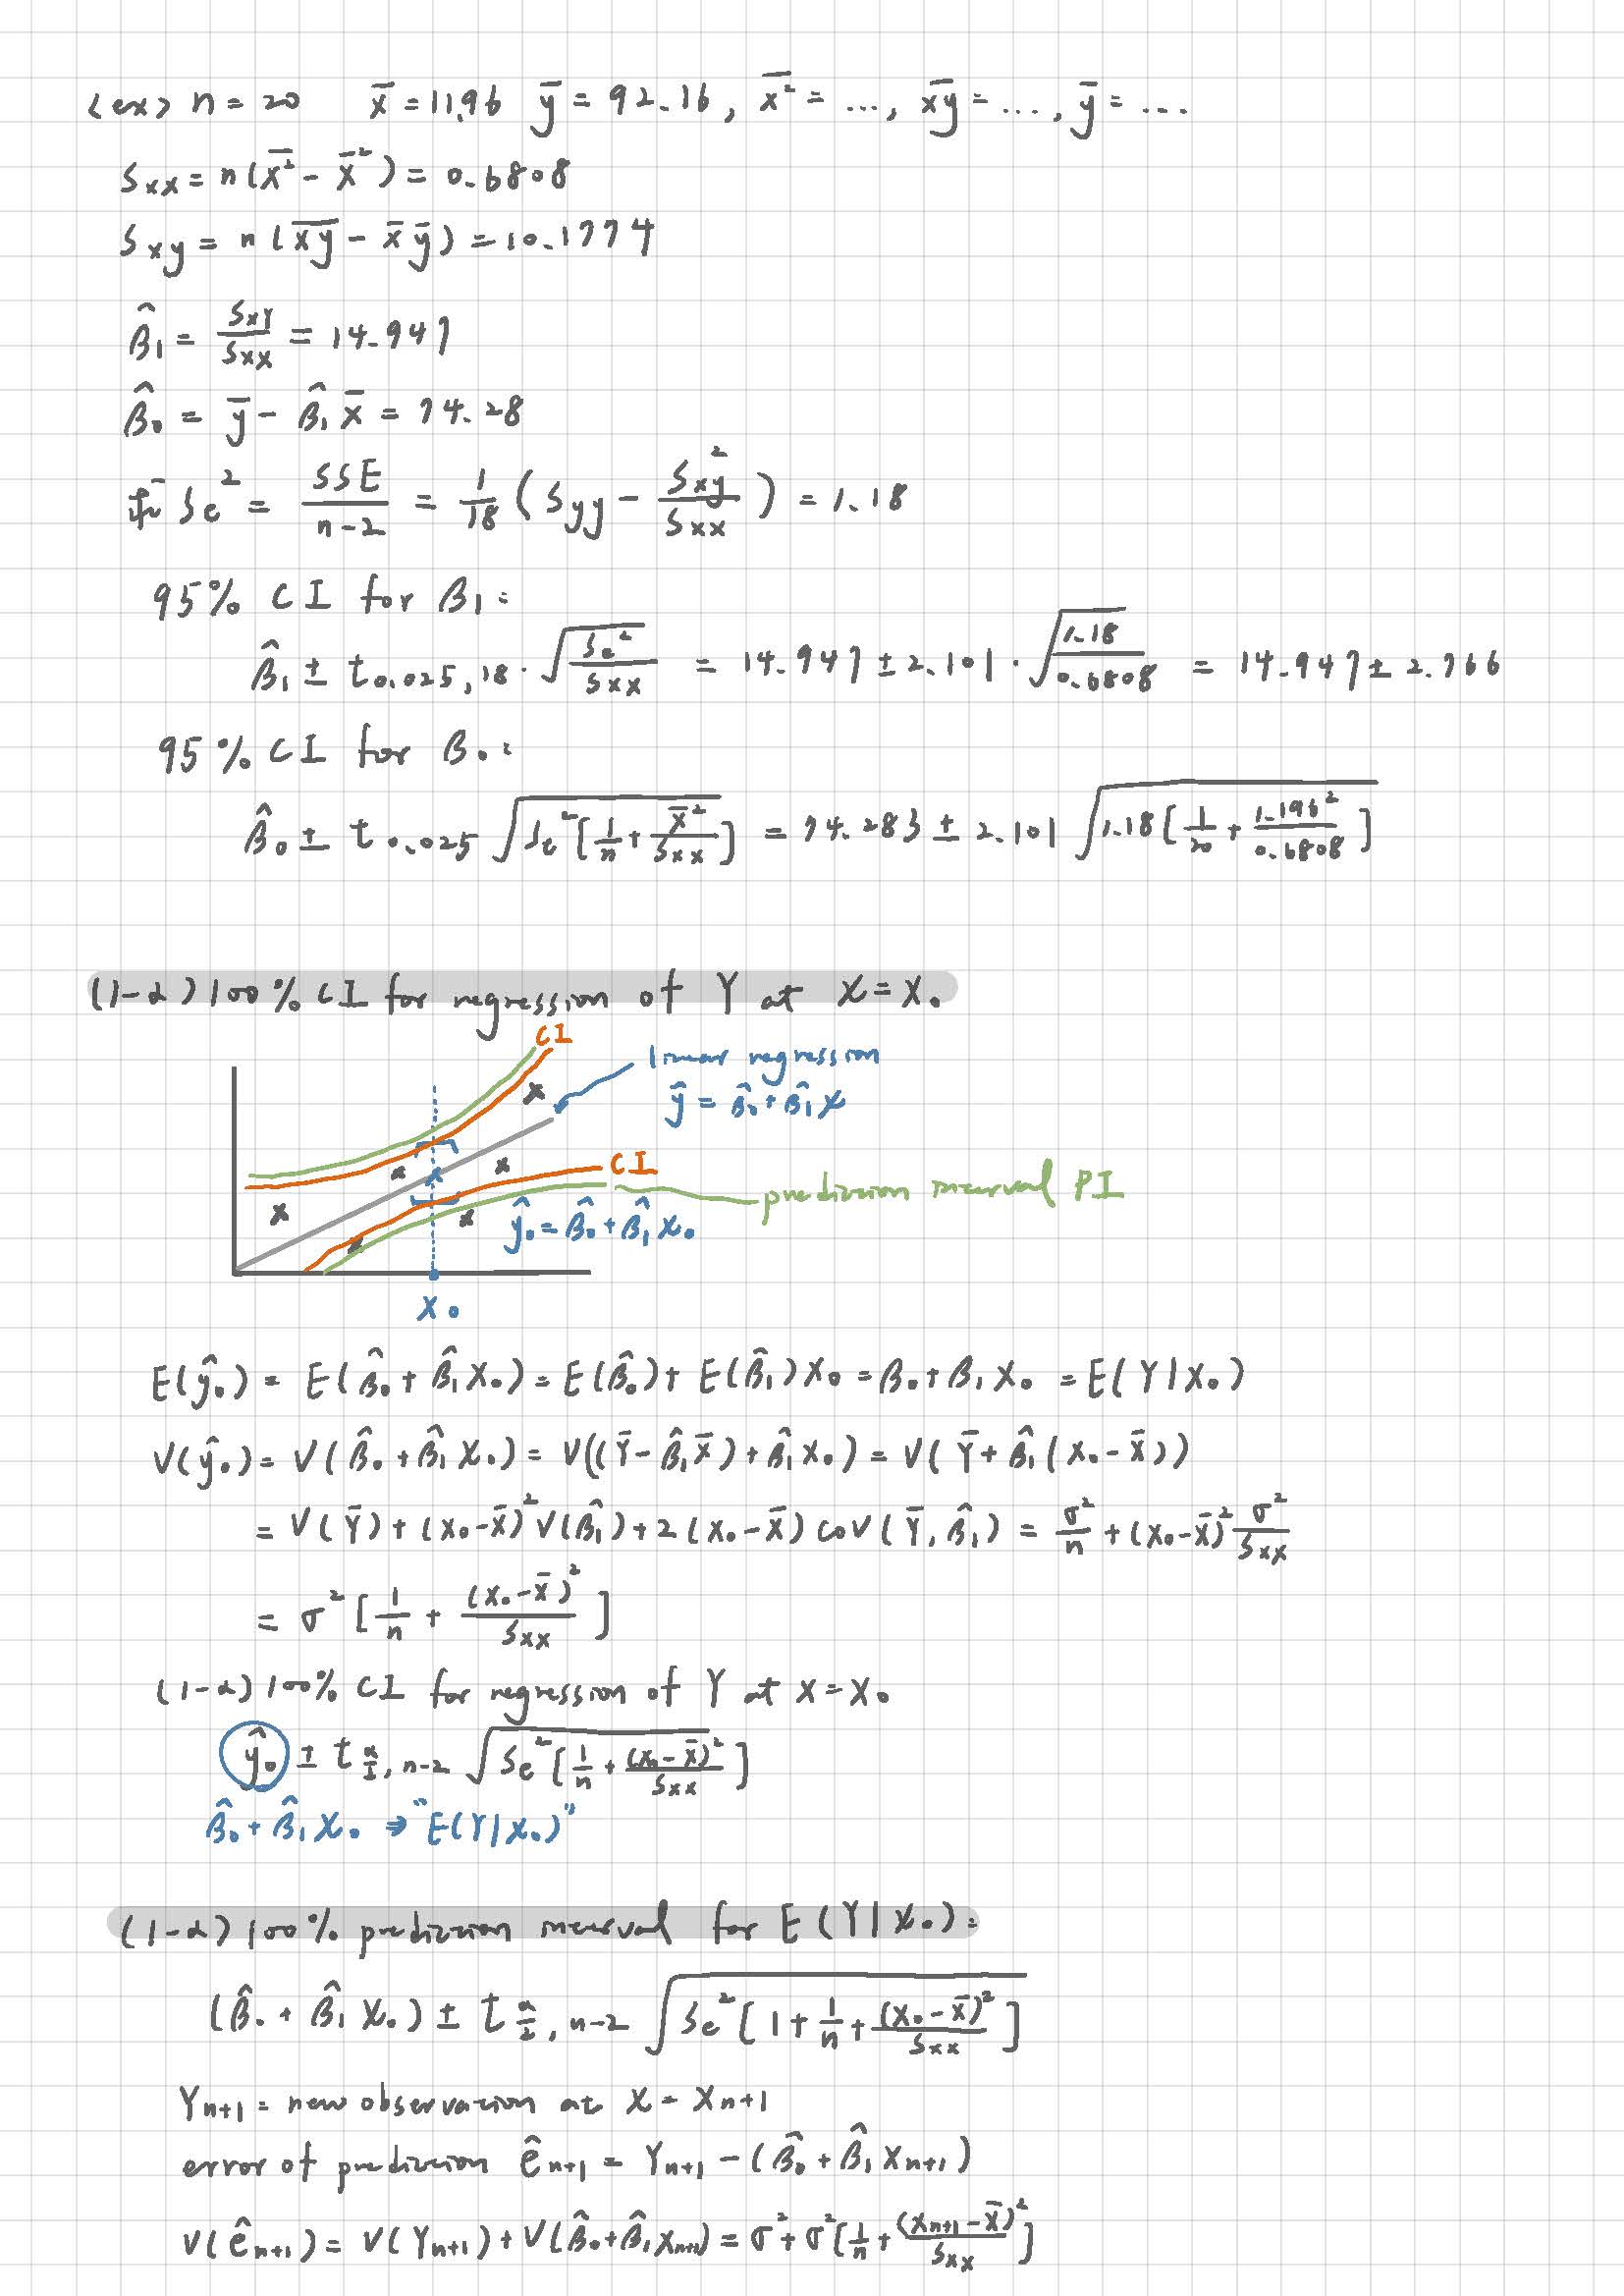 <ex> n = 20 x̄ = 11.96 ȳ = 92.16, x̄² = ..., x̄ȳ = ..., ȳ = ...
Sxx = n(x̄² - x̄²) = 0.6808
Sxy = n(x̄ȳ - x̄ ȳ) = 10.1774
β̂₁ = Sxy/Sxx = 14.947
β̂₀ = ȳ - β̂₁x̄ = 74.28
Se² = SSE/(n-2) = 1/18 (Syy - Sxy²/Sxx) = 1.18
95% CI for β₁:
β̂₁ ± t0.025,18 · √(Se²/Sxx) = 14.947 ± 2.101 · √(1.18/0.6808) = 14.947 ± 2.766
95% CI for β₀:
β̂₀ ± t0.025 √(Se²[1/n + x̄²/Sxx]) = 74.283 ± 2.101 √(1.18[1/20 + 1.196²/0.6808])
(1-α)100% CI for regression of Y at x = x₀
CI
linear regression
ŷ = β̂₀ + β̂₁x
CI
prediction interval PI
ŷ₀ = β̂₀ + β̂₁x₀
x₀
E(ŷ₀) = E(β̂₀ + β̂₁x₀) = E(β̂₀) + E(β̂₁)x₀ = β₀ + β₁x₀ = E(Y|x₀)
V(ŷ₀) = V(β̂₀ + β̂₁x₀) = V((Ȳ - β̂₁x̄) + β̂₁x₀) = V(Ȳ + β̂₁(x₀ - x̄))
= V(Ȳ) + (x₀-x̄)²V(β̂₁) + 2(x₀-x̄) cov(Ȳ, β̂₁) = σ²/n + (x₀-x̄)² σ²/Sxx
= σ²[1/n + (x₀-x̄)²/Sxx]
(1-α)100% CI for regression of Y at x = x₀
ŷ₀ ± t α/2, n-2 √(Se²[1/n + (x₀-x̄)²/Sxx])
β̂₀ + β̂₁x₀ → "E(Y|x₀)"
(1-α)100% prediction interval for E(Y|x₀):
(β̂₀ + β̂₁x₀) ± t α/2, n-2 √(Se²[1 + 1/n + (x₀-x̄)²/Sxx])
Yn+1 = new observation at x = xn+1
error of prediction ên+1 = Yn+1 - (β̂₀ + β̂₁xn+1)
V(ên+1) = V(Yn+1) + V(β̂₀ + β̂₁xn+1) = σ² + σ²[1/n + (xn+1-x̄)²/Sxx]